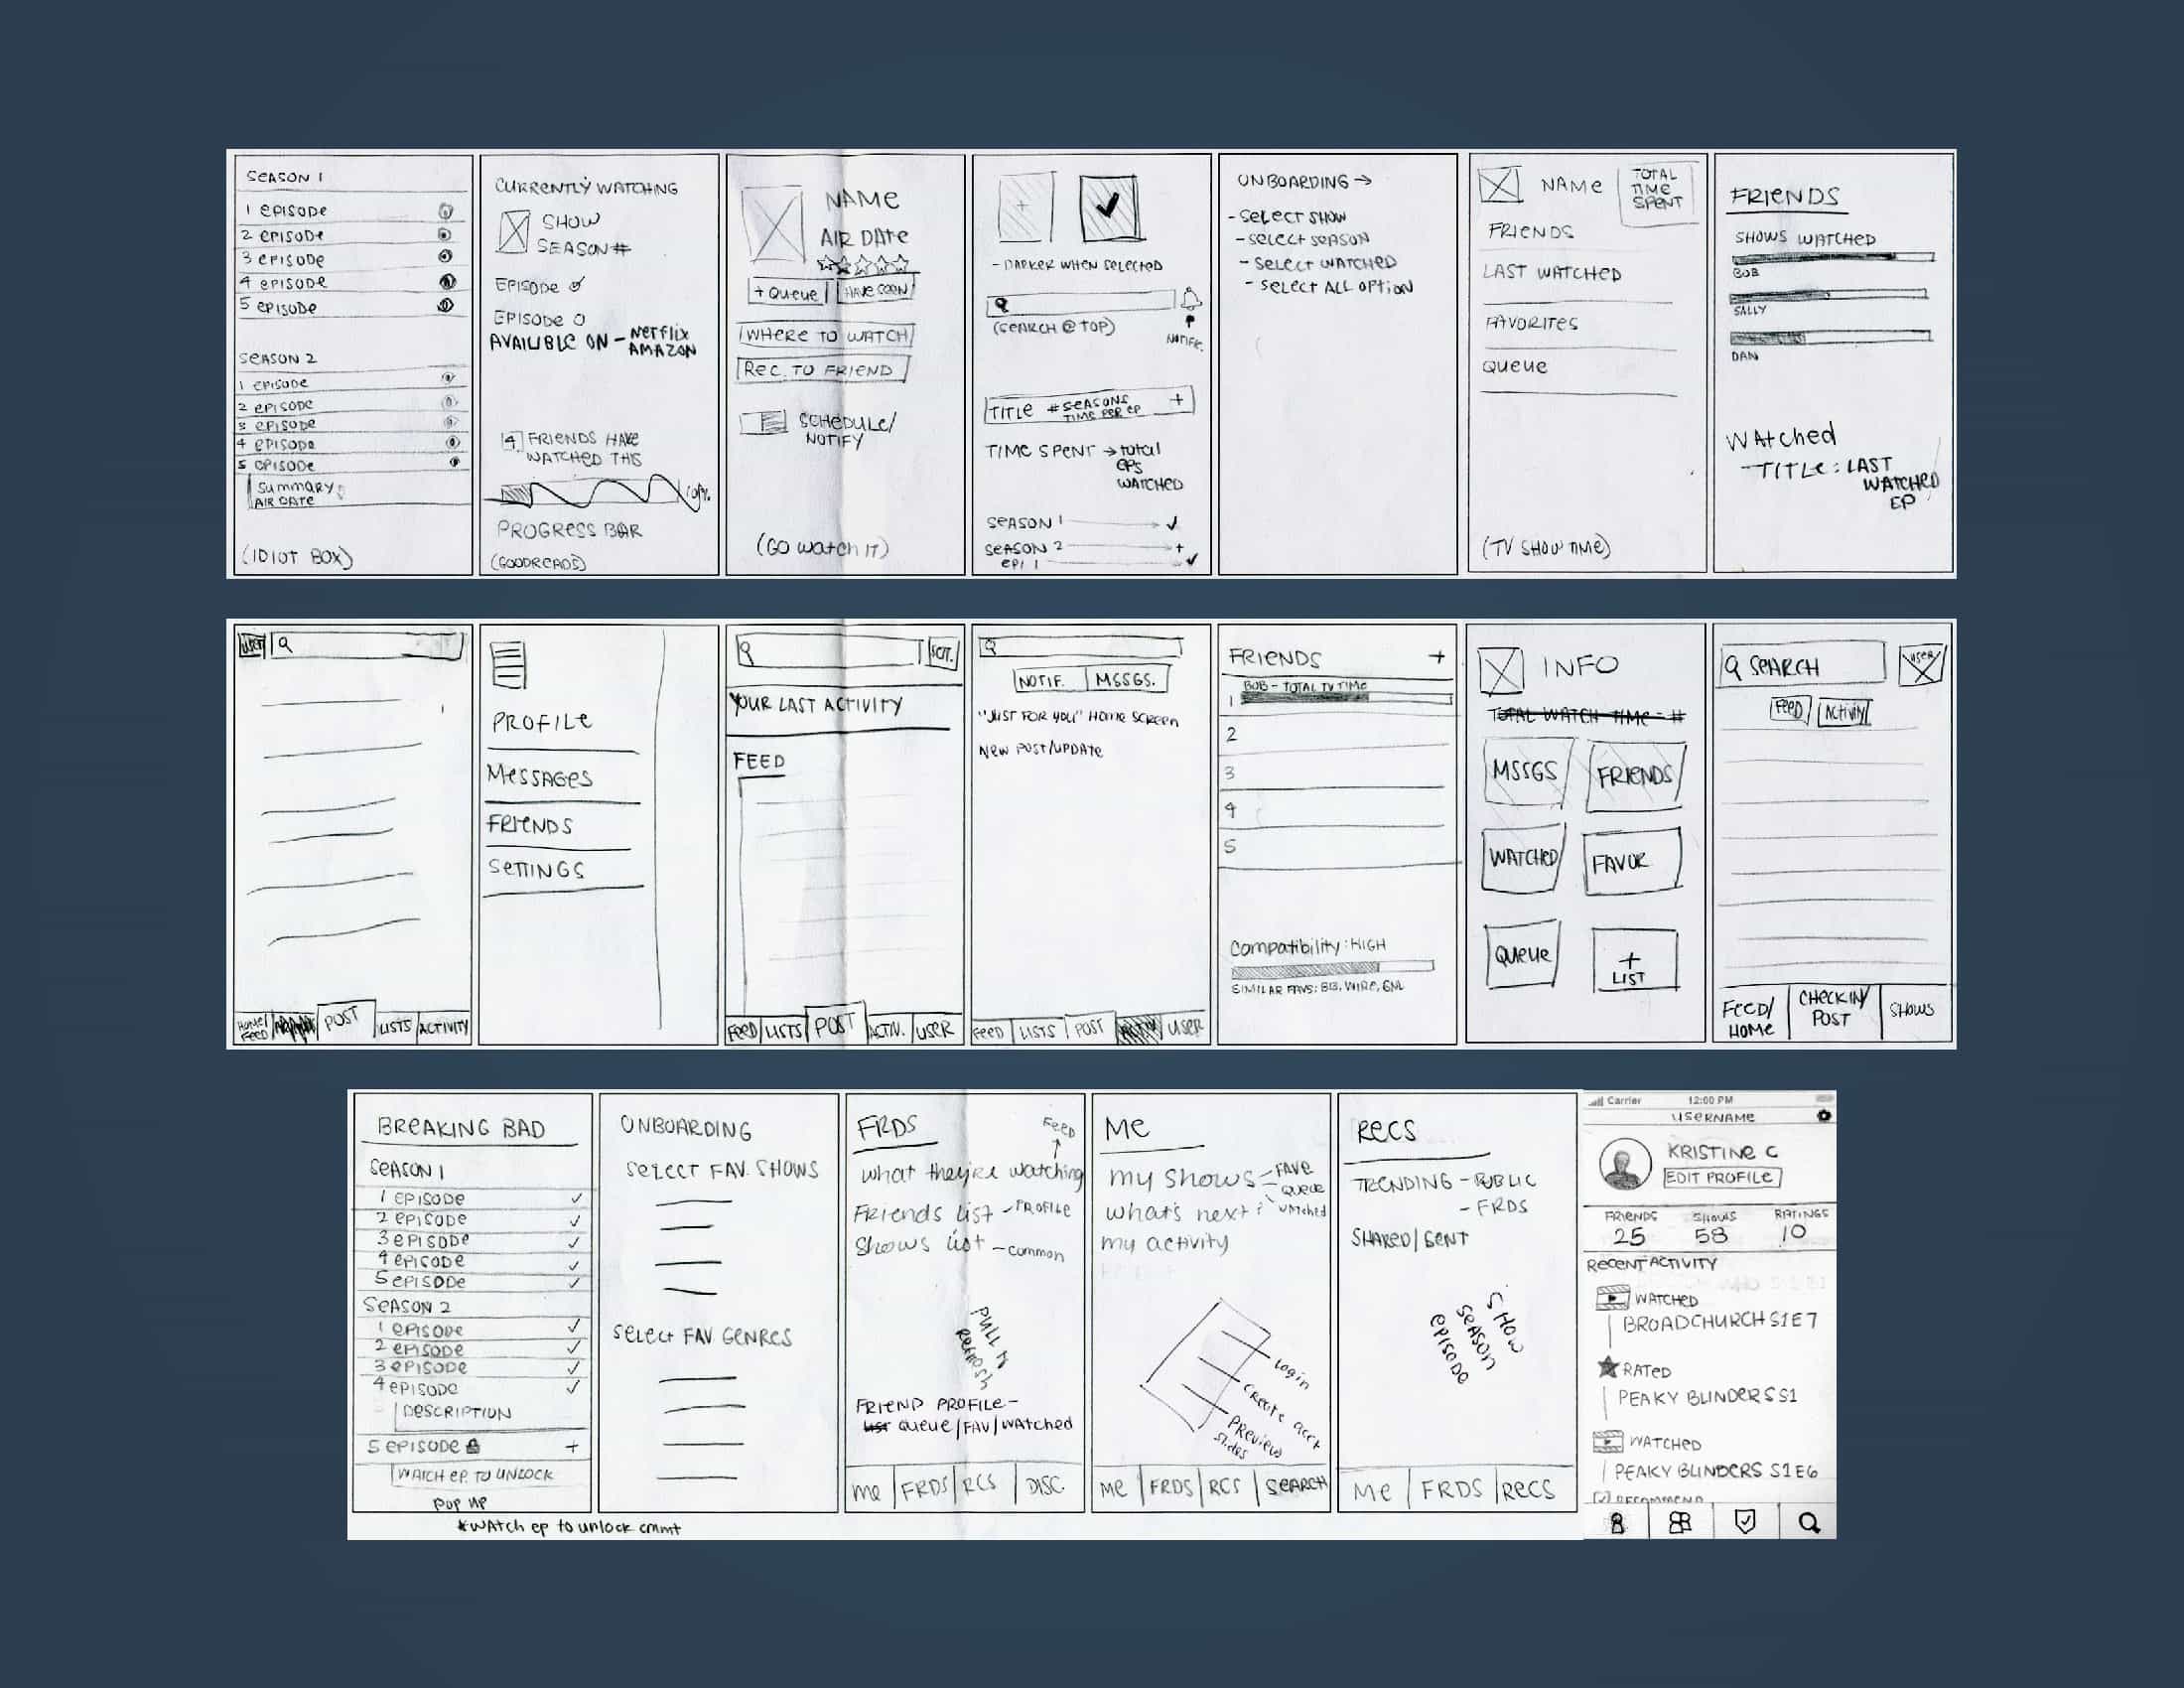 SEASON 1
1 EPISODE
2 EPISODE
3 EPISODE
4 EPISODE
5 EPISODE
SEASON 2
1 EPISODE
2 EPISODE
3 EPISODE
4 EPISODE
5 EPISODE
SUMMARY
AIR DATE
(IDIOT BOX)
CURRENTLY WATCHING
SHOW
SEASON #
EPISODE
EPISODE
AVAILIBLE ON - NETFLIX
AMAZON
4 FRIENDS HAVE
WATCHED THIS
PROGRESS BAR
(GOODREADS)
NAME
AIR DATE
+ QUEUE HAVE SEEN
WHERE TO WATCH
REC. TO FRIEND
SCHEDULE/
NOTIFY
(GO WATCH IT)
+
- DARKER WHEN SELECTED
(SEARCH @ TOP)
NOTIFS.
TITLE # SEASONS +
TIME PER EP
TIME SPENT → TOTAL
EPS
WATCHED
SEASON 1
SEASON 2 +
EPI 1
UNBOARDING →
- SELECT SHOW
- SELECT SEASON
- SELECT WATCHED
- SELECT ALL OPTION
NAME
TOTAL
TIME
SPENT
FRIENDS
LAST WATCHED
FAVORITES
QUEUE
(TV SHOW TIME)
FRIENDS
SHOWS WATCHED
BOB
SALLY
DAN
WATCHED
- TITLE: LAST
WATCHED
EP
USER
HOME/
FEED POST LISTS ACTIVITY
PROFILE
MESSAGES
FRIENDS
SETTINGS
YOUR LAST ACTIVITY
FEED
FEED LISTS POST ACTIV. USER
NOTIF. MSSGS.
"JUST FOR YOU" HOME SCREEN
NEW POST/UPDATE
FEED LISTS POST USER
FRIENDS +
BOB - TOTAL TV TIME
1
2
3
4
5
COMPATIBILITY: HIGH
SIMILAR FAVS: BB, WIRE, SNL
INFO
TOTAL WATCH TIME = #
MSSGS FRIENDS
WATCHED FAVOR
QUEUE +
LIST
SEARCH USER
FEED ACTIVITY
FEED/
HOME CHECKIN/
POST SHOWS
BREAKING BAD
SEASON 1
1 EPISODE
2 EPISODE
3 EPISODE
4 EPISODE
5 EPISODE
SEASON 2
1 EPISODE
2 EPISODE
3 EPISODE
4 EPISODE
DESCRIPTION
5 EPISODE +
WATCH EP. TO UNLOCK
POP UP
*WATCH EP TO UNLOCK CMMT
UNBOARDING
SELECT FAV. SHOWS
SELECT FAV GENRES
FRDS FEED
what they're watching
Friends list - PROFILE
Shows list - common
PULL TO
REFRESH
FRIEND PROFILE -
LIST QUEUE/FAV/WATCHED
ME FRDS RCS DISC.
ME
my shows - FAVE
QUEUE
WATCHED
what's next?
my activity
LOGIN
CREATE ACCT
PREVIEW
SLIDES
ME FRDS RCS SEARCH
RECS
TRENDING - PUBLIC
- FRDS
SHARED/SENT
SHOW
SEASON
EPISODE
ME FRDS RECS
Carrier 12:00 PM
USERNAME
KRISTINE C
EDIT PROFILE
FRIENDS SHOWS RATINGS
25 58 10
RECENT ACTIVITY
WATCHED
BROADCHURCH S1E7
RATED
PEAKY BLINDERS S1
WATCHED
PEAKY BLINDERS S1E6
RECOMMEND